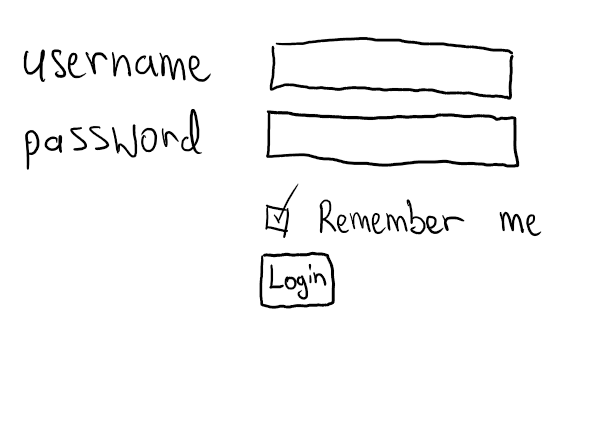 username
password
Remember me
Login